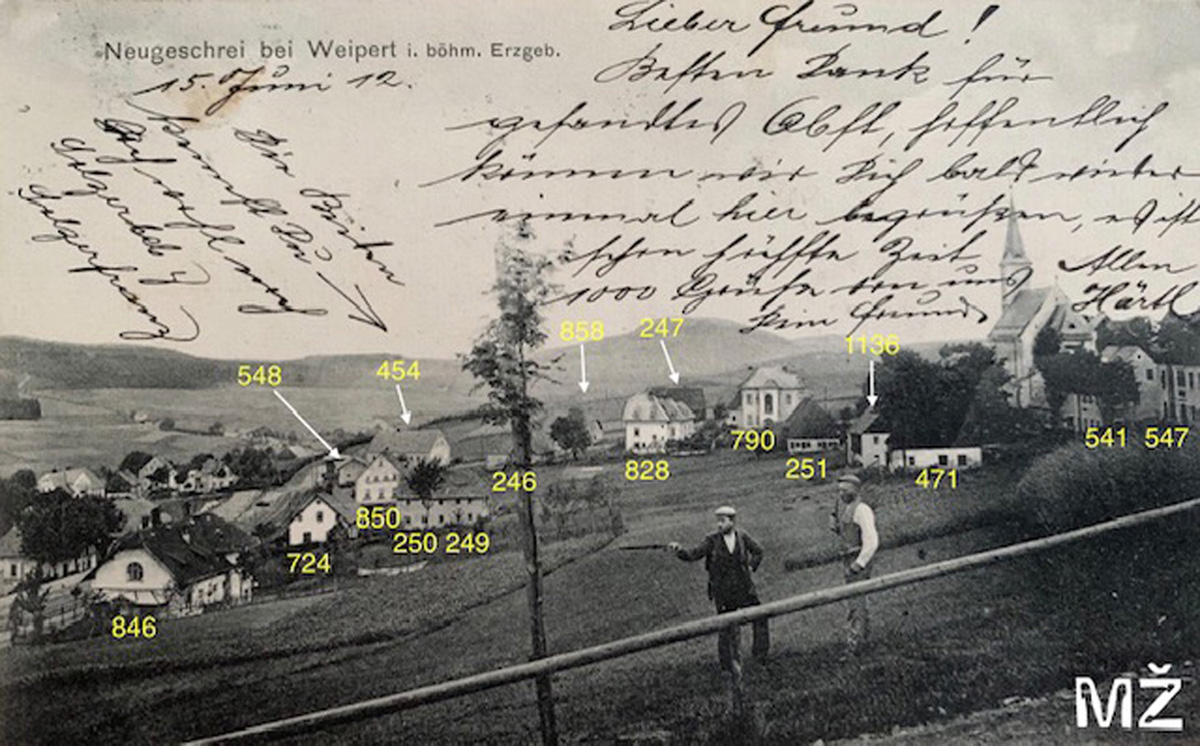 Neugeschrei bei Weipert i. böhm. Erzgeb.
15. Juni 12.
Lieber Freund!
Besten Dank für
gesandtes Obst, hoffentlich
können wir Dich bald wieder
einmal hier begrüßen, es ist
schon Zeit
1000 Grüße von uns Allen
Dein Freund Härtl
Die Beiden
kennst Du
doch wohl noch
858
247
1136
548
454
790
541 547
246
828
251
471
850
250 249
724
846
MŽ